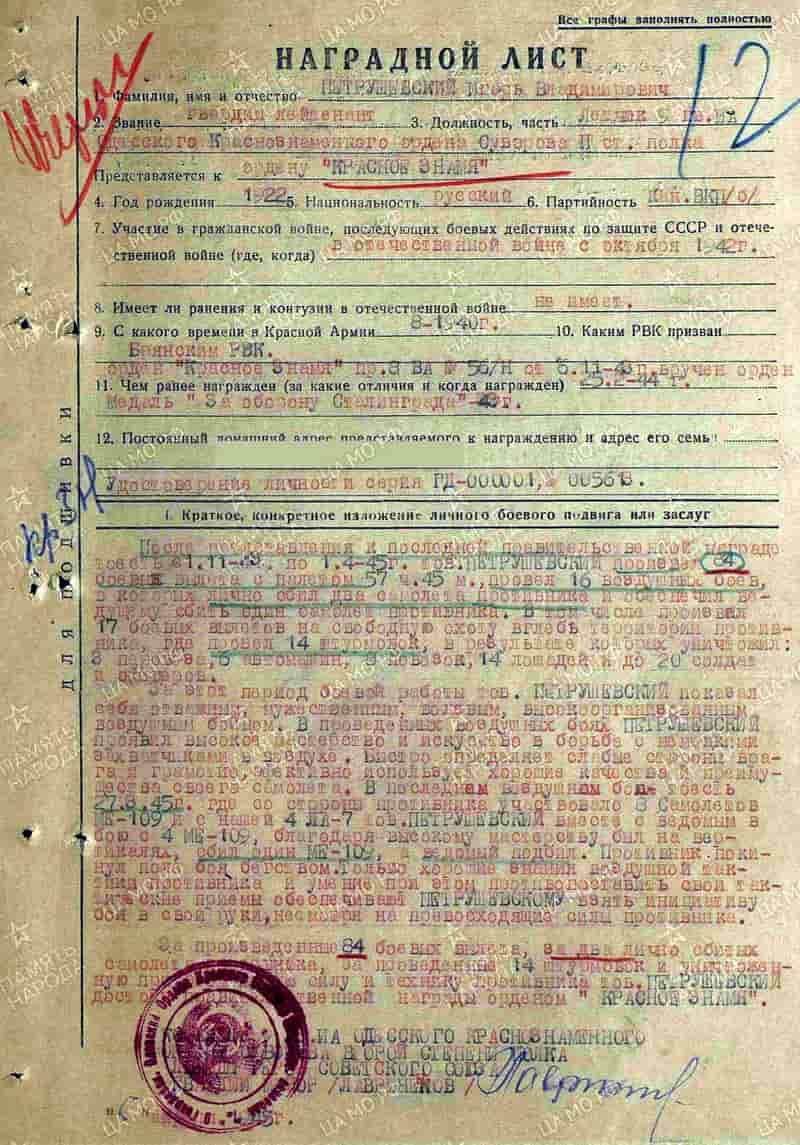 Все графы заполнять полностью
НАГРАДНОЙ ЛИСТ
Фамилия, имя и отчество ПЕТРУШЕВСКИЙ Игорь Владимирович
2. Звание Гвардии лейтенант 3. Должность, часть
Одесского Краснознаменного ордена Суворова П ст. полка
Представляется к ордену "КРАСНОЕ ЗНАМЯ"
12
4. Год рождения 1922 5. Национальность русский 6. Партийность ВКП/б/
7. Участие в гражданской войне, последующих боевых действиях по защите СССР и отече-
ственной войне (где, когда) в отечественной война с октября 1942г.
8. Имеет ли ранения и контузии в отечественной войне не имеет.
9. С какого времени в Красной Армии 8-1940г. 10. Каким РВК призван
Брянским РВК.
орден "Красное Знамя" пр.8 ВА № 56/Н от 5.11-43г.вручен орден
11. Чем ранее награжден (за какие отличия и когда награжден) 25.2-44 г.
Медаль " За оборону Сталинграда"-43г.
12. Постоянный домашний адрес представляемого к награждению и адрес его семьи
Удостоверение личности серия РД-000001,№ 005613.
ДЛЯ ПОДШИВКИ
1. Краткое, конкретное изложение личного боевого подвига или заслуг
После представления к последней правительственной награде
тоесть с 1.11-43г. по 1.4-45г. тов.ПЕТРУШЕВСКИЙ произвел 84
боевых вылета с налетом 57 ч.45 м.,провел 16 воздушных боев,
в которых лично сбил два самолета противника и обеспечил ве-
дущему сбить один самолет противника. В том числе произвел
17 боевых вылетов на свободную охоту вглубь территории против-
ника, где провел 14 штурмовок, в результате которых уничтожил:
3 паровоза, 6 автомашин, 9 повозок, 14 лошадей и до 20 солдат
и офицеров.
За этот период боевой работы тов. ПЕТРУШЕВСКИЙ показал
себя отважным, мужественным, волевым, высокоорганизованным
воздушным бойцом. В проведенных воздушных боях ПЕТРУШЕВСКИЙ
проявил высокое мастерство и искусство в борьбе с немецкими
захватчиками в воздухе. Быстро определяет слабые стороны вра-
га и грамотно,эфективно использует хорошие качества и преиму-
щества своего самолета. В последнем воздушном бою тоесть
27.3.45г. где со стороны противника участвовало 8 Самолетов
МЕ-109 и с нашей 4 ЛА-7 тов.ПЕТРУШЕВСКИЙ вместе с ведомым в
бою с 4 МЕ-109, благодаря высокому мастерству был на вер-
тикалях, сбил один МЕ-109, а ведомый подбил. Противник поки-
нул поле боя бегством.Только хорошие знания воздушной так-
тики противника и умение при этом противопоставить свои так-
тические приемы обеспечивают ПЕТРУШЕВСКОМУ взять инициативу
боя в свои руки,несмотря на превосходящие силы противника.
За произведенные 84 боевых вылета, за два лично сбитых
самолета противника, за проведенные 14 штурмовок и уничтожен-
ную при этом живую силу и технику противника тов.ПЕТРУШЕВСКИЙ
достоин правительственной награды орденом " КРАСНОЕ ЗНАМЯ".
ИАП ОДЕССКОГО КРАСНОЗНАМЕННОГО
СУВОРОВА ВТОРОЙ СТЕПЕНИ ПОЛКА
СОВЕТСКОГО СОЮЗА
ГВАРДИИ МАЙОР /ЛАВРЕНЕКОВ/
45г.
ПАМЯТЬ НАРОДА
ЦАМО.РФ